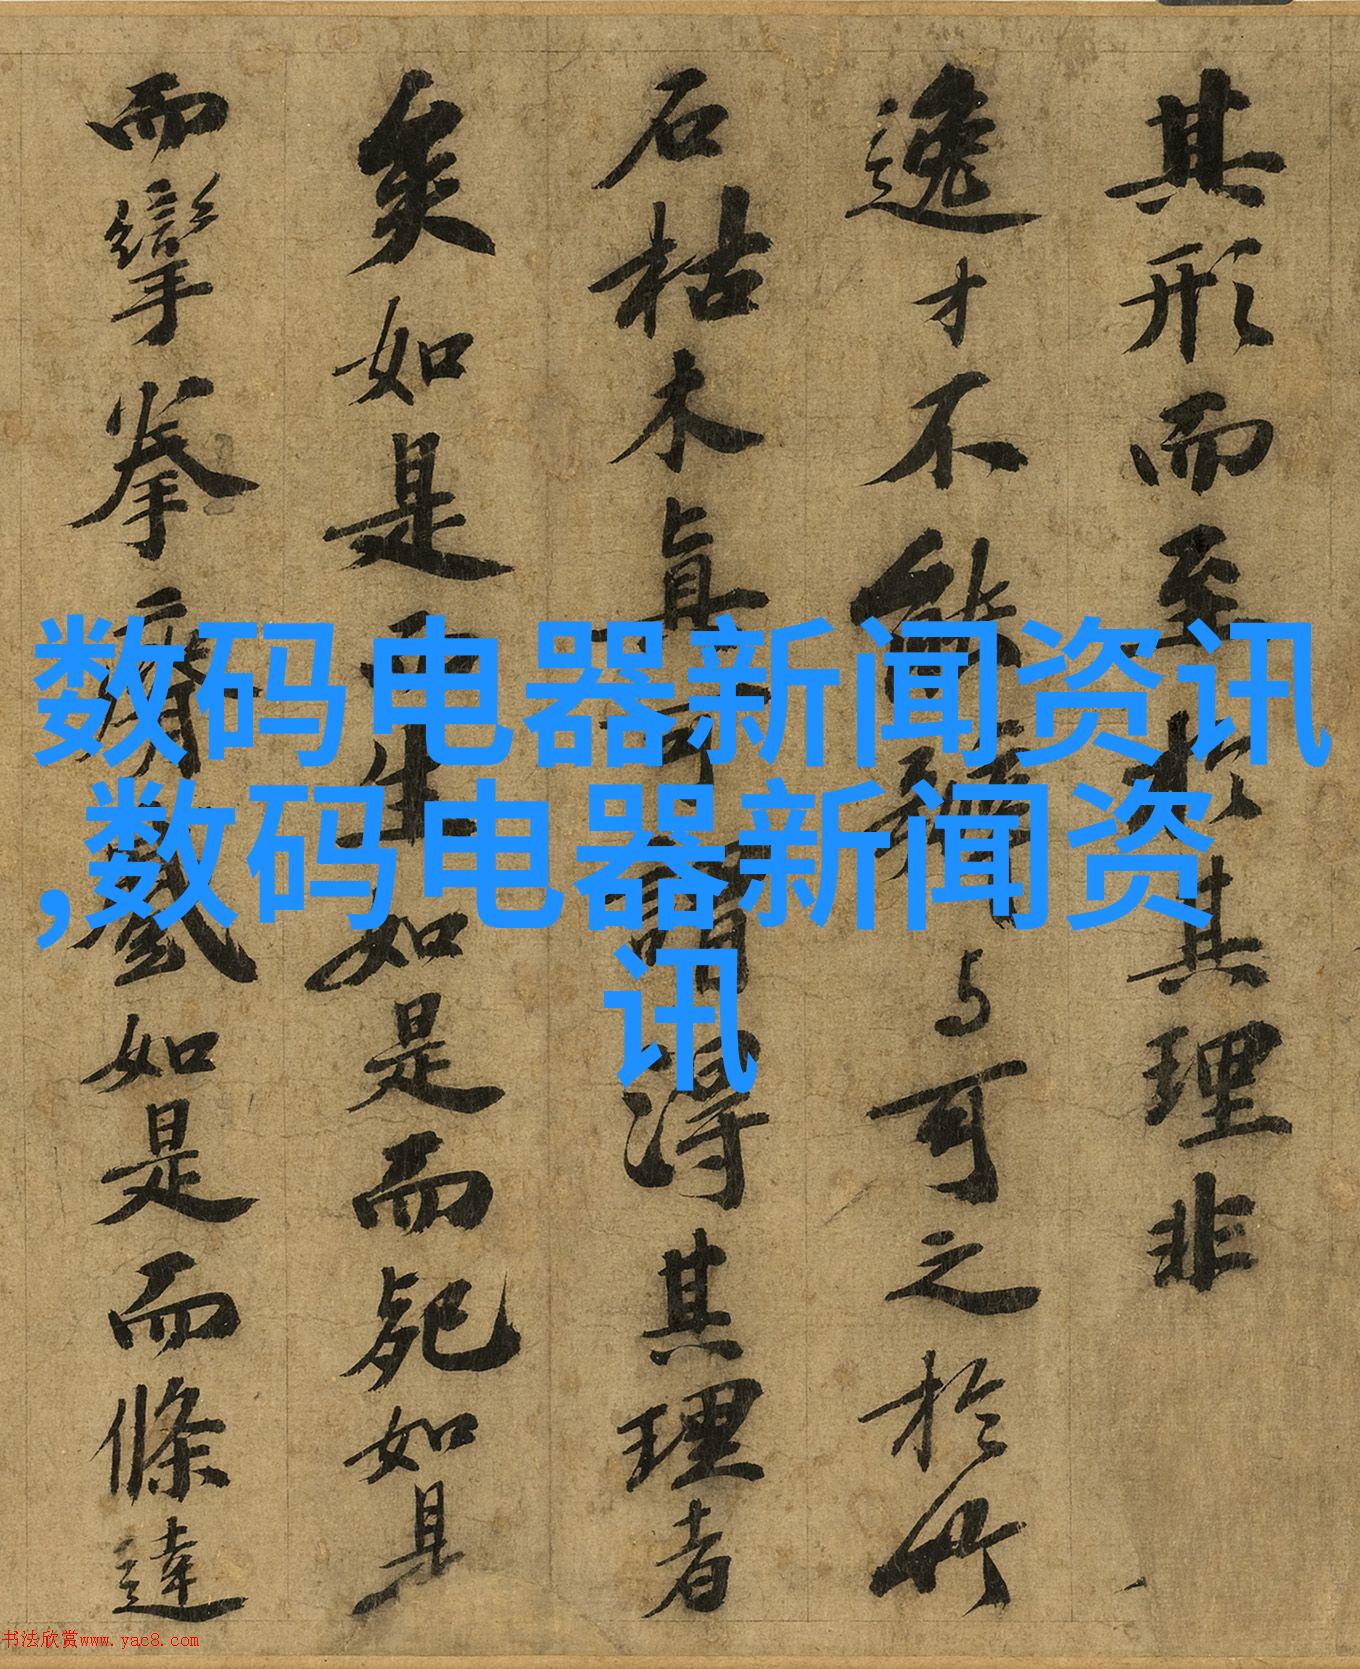 其形而至於其理非
逸才不能与可之於竹
石枯木真可謂得其理者
矣如是而生如是而死如是
而攣拳瘠蹙如是而條達
数码电器新闻资讯
,数码电器新闻资
讯
书法欣赏www.yac8.com